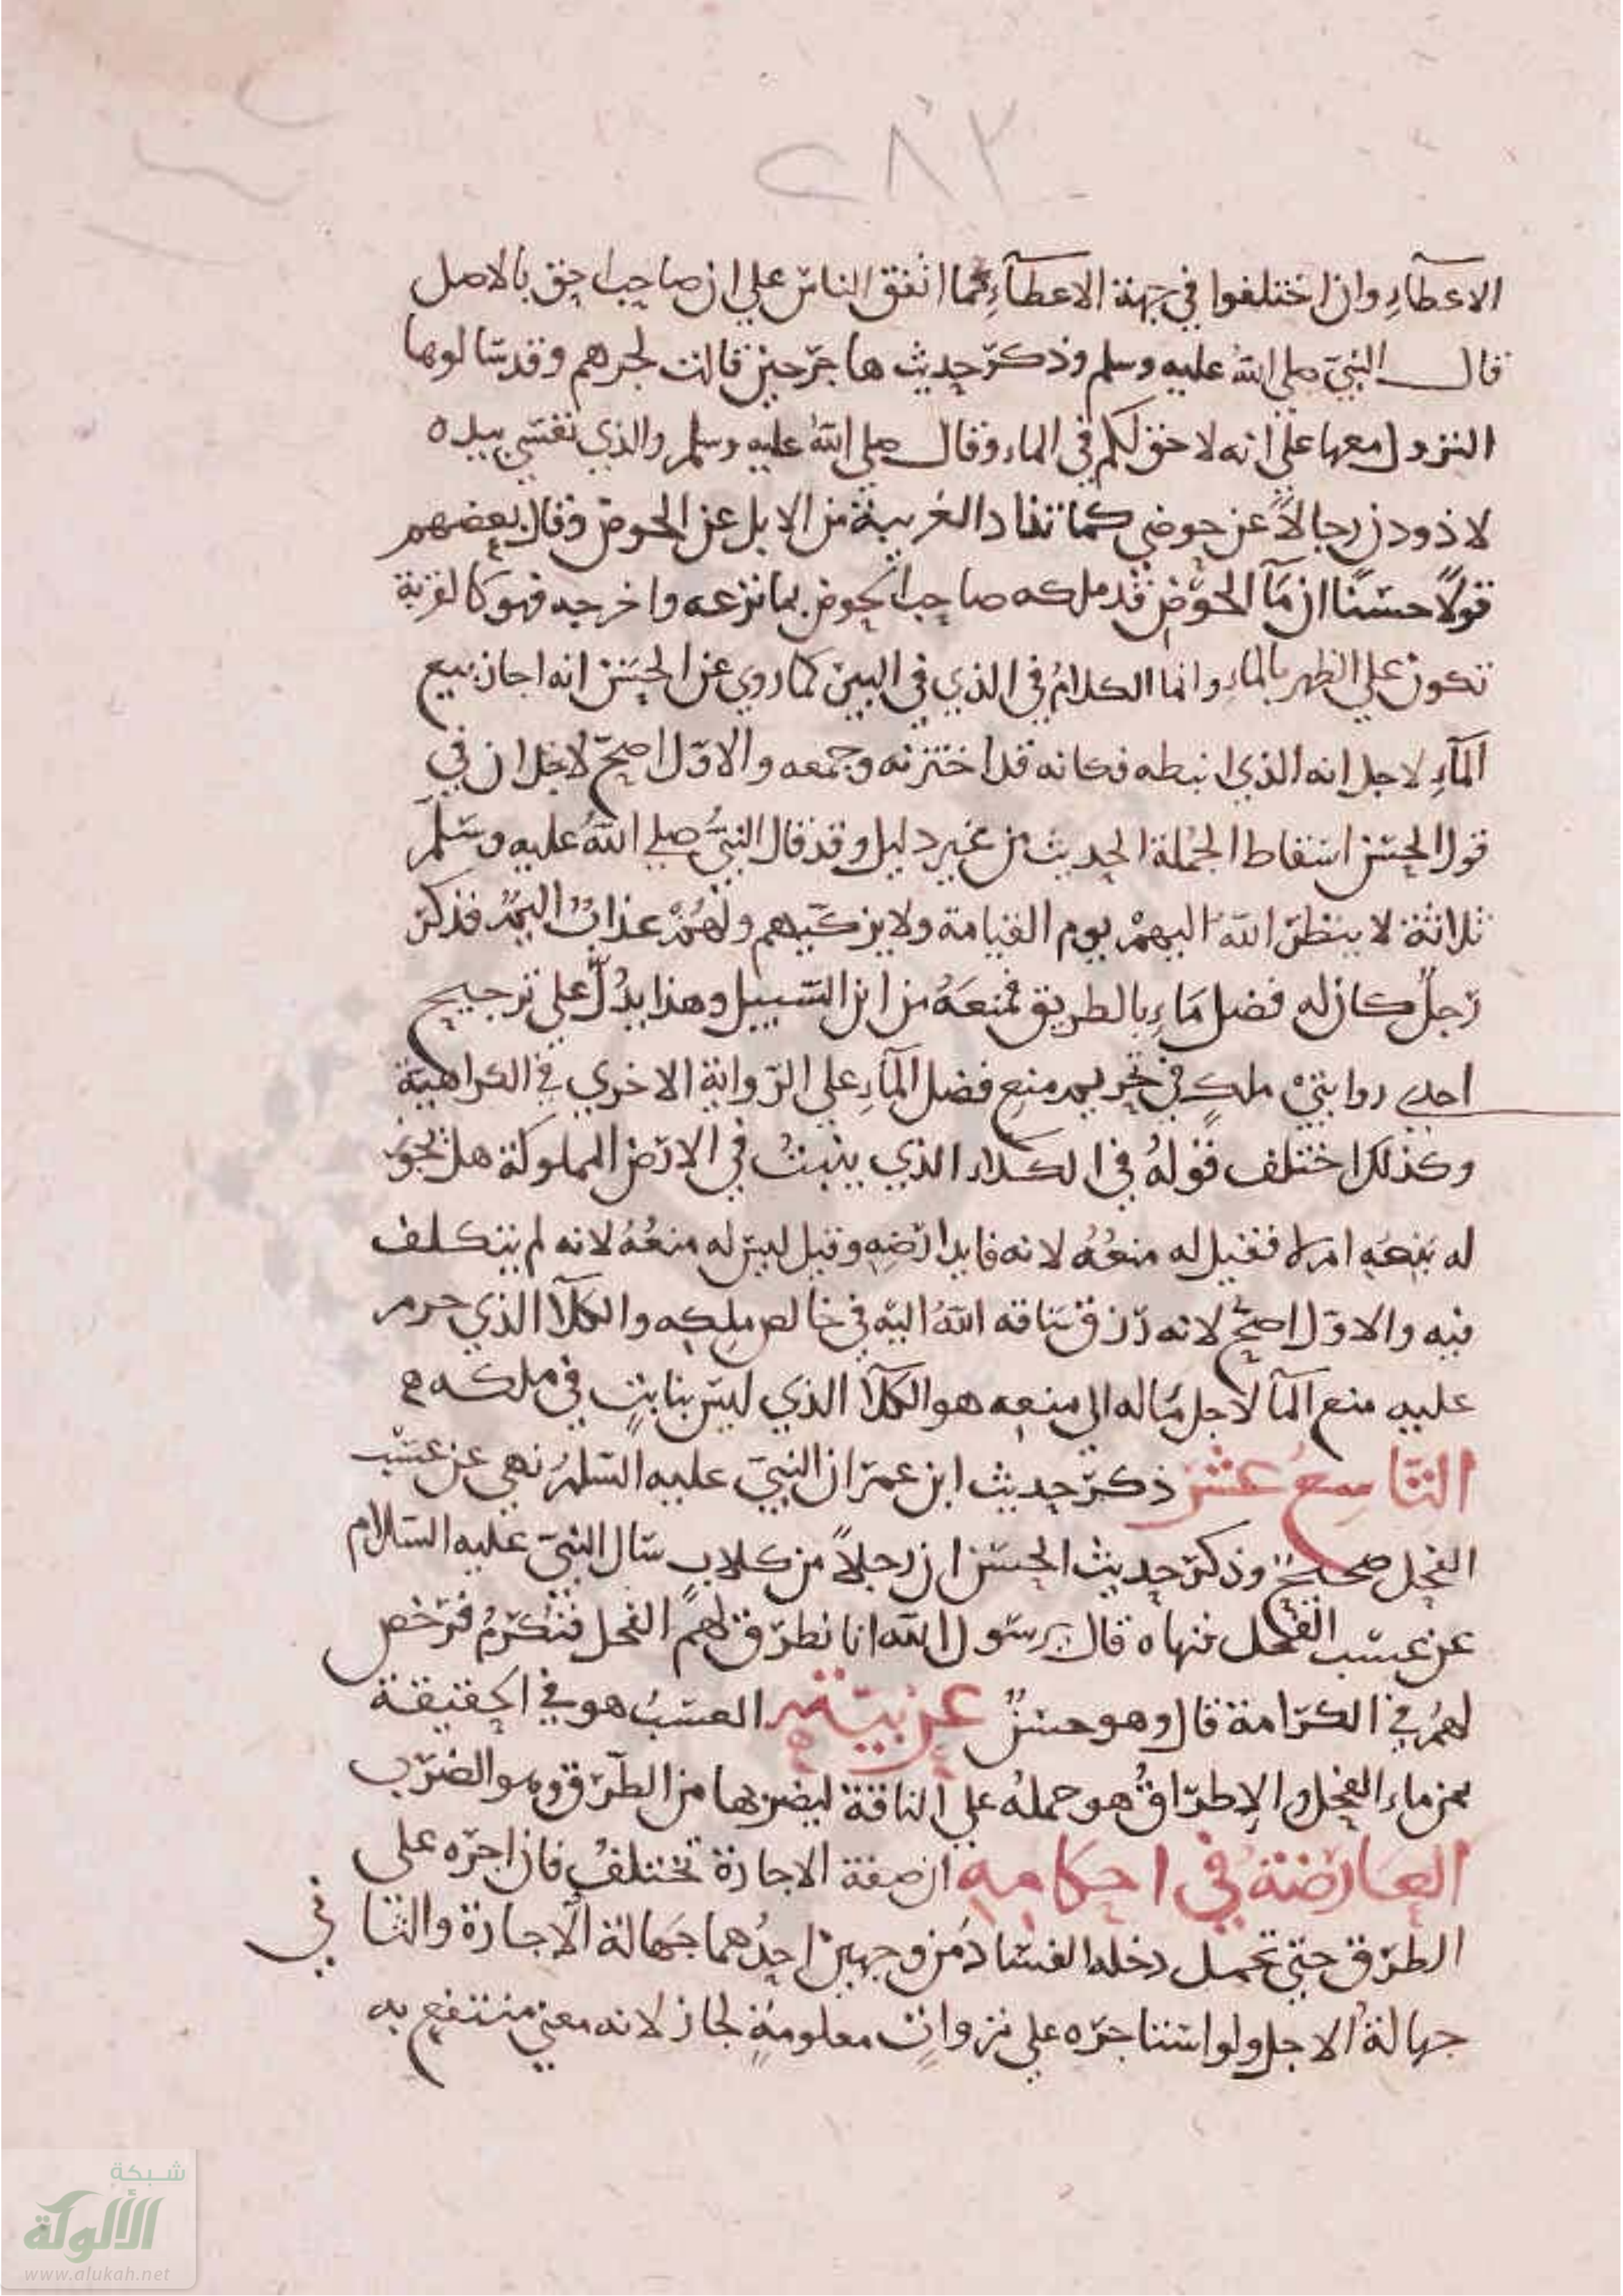 ٢٨٢
الاعطآءِ وان اختلفوا في جهة الاعطآءِ كما اتفق الناس علي ان صاحبها احق بالاصل
قال النبيّ صلي اللهُ عليه وسلم وذكر حديث هاجر حين قالت لجرهم وقد سالوها
النزول معها علي انه لا حق لكم في الماء وقال صلي اللهُ عليه وسلم والذي نفسي بيده
لاذودن رجالاً عن حوضي كما تذاد الغريبة من الابل عن الحوض وقال بعضهم
قولاً حسنًا ان مآ الحوض قد ملكه صاحب الحوض بما نزعه واخرجه فهو كالقربة
تكون علي الظهر بالماءِ وانما الكلامُ في الذي في البير كما روي عن الحسن انه اجاز بيع
المآءِ لاجل انه الذي انبطه فكانه قد اختزنه وجمعه والاوّل اصحّ لاجل ان في
قول الحسن اسقاط الجُملة الحديث من غير دليل وقد قال النبيُّ صلي اللهُ عليه وسلّم
ثلاثة لا ينظر اللهُ اليهمْ يوم القيامة ولا يزكّيهم ولهُمْ عذابٌ اليمٌ فذكر
رجلٌ كان له فضل مَاءِ بالطريق فمنعَهُ من ابن السّبيل وهذا يدُلُّ علي ترجيح
احدي روايتيْ ملكٍ في تحريم منع فضل المآءِ علي الرّواية الاخري في الكراهيّة
وكذلك اختلف قولهُ في الكلاء الذي ينبتُ في الارض المملوكة هل يجوز
له بَيْعَه ام لا فقيل له منعُهُ لانه فايدة ارْضِهِ وقيل ليس له منعُهُ لانه لم يتكلف
فيه والاوّل اصحّ لانه رزق ساقه اللهُ اليه في خالص مِلكِه والكلآ الذي حرم
عليه منع المآ لاجل مَاله الي منعه هو الكلآ الذي ليس بنابتٍ في ملكه
التاسعُ عشر ذكر حديث ابن عمر ان النبيّ عليه السّلمُ نهي عن عسْب
الفحل صحيحٌ وذكر حديث الحسن ان رجلاً من كلاب سال النبيّ عليه السّلام
عن عسْب الفحل فنهاه قال يرسول الله انا نطرق لهم الفحل فنُكرَمُ فرّخص
لهمُ في الكرامة قال وهو حسنٌ عربيّته العسْبُ هو في الحقيقة
ثمن ماء الفحل والإطراقُ هو حملهُ علي الناقة ليضربها من الطَّرْق وهو الضرب
العارضةُ في احكامه ان صفة الاجارة تختلفُ فان اجرّه علي
الطرق حتي تحمل دخله الفسادُ من وجهين احدُهما جَهالة الاجارة والثاني
جهالةُ الاجل ولو استاجره علي نزواتٍ معلومةٍ لجاز لانه معني منتفع به
شبكة
الألوكة
www.alukah.net